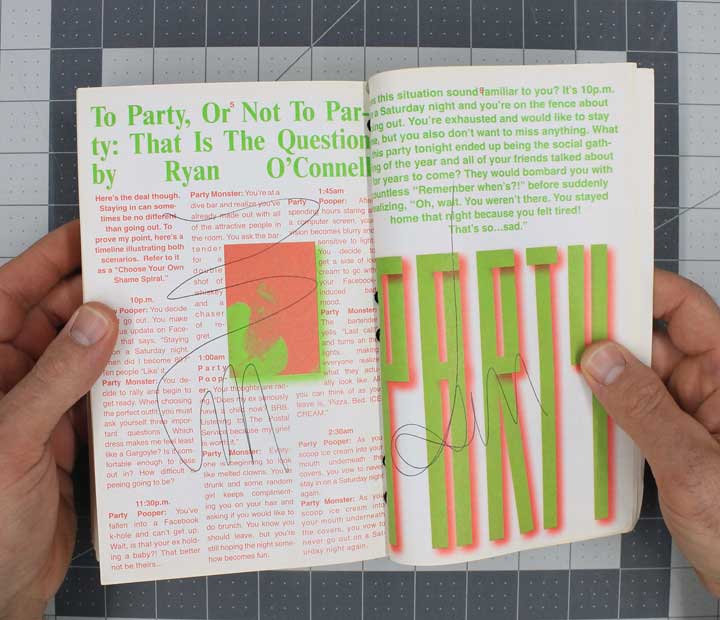 To Party, Or5 Not To Par-
ty: That Is The Question
by Ryan O'Connell
Here's the deal though.
Staying in can some-
times be no different
than going out. To
prove my point, here's a
timeline illustrating both
scenarios. Refer to it
as a "Choose Your Own
Shame Spiral."
10p.m.
Pooper: You decide
go out. You make
update on Face-
that says, "Staying
on a Saturday night
did I become 80?"
Ten people "Like" it.
Party Monster: You de-
cide to rally and begin to
get ready. When choosing
the perfect outfit, you must
ask yourself three impor-
tant questions: Which
dress makes me feel least
like a Gargoyle? Is
enough to pass
out in? How difficult
peeing going to be?
11:30p.m.
Party Pooper: You've
fallen into a Facebook
k-hole and can't get up.
Wait, is that your ex hold-
ing a baby?! That better
not be theirs...
Party Monster: You're at a
dive bar and realize you've
already made out with all
of the attractive people in
the room. You ask the bar-
tender
for a
double
shot of
whiskey
and a
chaser
of re-
gret.
1:00am
Party
Pooper:
Your thoughts are rac-
ing. "Does my ex seriously
have a child now? BRB.
Listening to The Postal
Service because my grief
is worth it."
Party Monster: Every-
one is beginning to look
like melted clowns. You're
drunk and some random
girl keeps compliment-
ing you on your hair and
asking if you would like to
do brunch. You know you
should leave, but you're
still hoping the night some-
how becomes fun.
1:45am
Party Pooper: After
spending hours staring at
a computer screen, your
vision becomes blurry and
sensitive to light.
You decide to
get a side of ice
cream to go with
your Facebook-
induced bad
mood.
Party Monster:
The bartender
yells "Last call!"
and turns on the
lights, making
everyone realize
what they actu-
ally look like. All
you can think of as you
leave is, "Pizza. Bed. ICE
CREAM."
2:30am
Party Pooper: As you
scoop ice cream into your
mouth underneath the
covers, you vow to never
stay in on a Saturday night
again.
Party Monster: As you
scoop ice cream into
your mouth underneath
the covers, you vow to
never go out on a Sat-
urday night again.
this situation sound familiar to you? It's 10p.m.
a Saturday night and you're on the fence about
going out. You're exhausted and would like to stay
but you also don't want to miss anything. What
this party tonight ended up being the social gath-
ering of the year and all of your friends talked about
for years to come? They would bombard you with
countless "Remember when's?!" before suddenly
realizing, "Oh, wait. You weren't there. You stayed
home that night because you felt tired!
That's so...sad."
PARTY